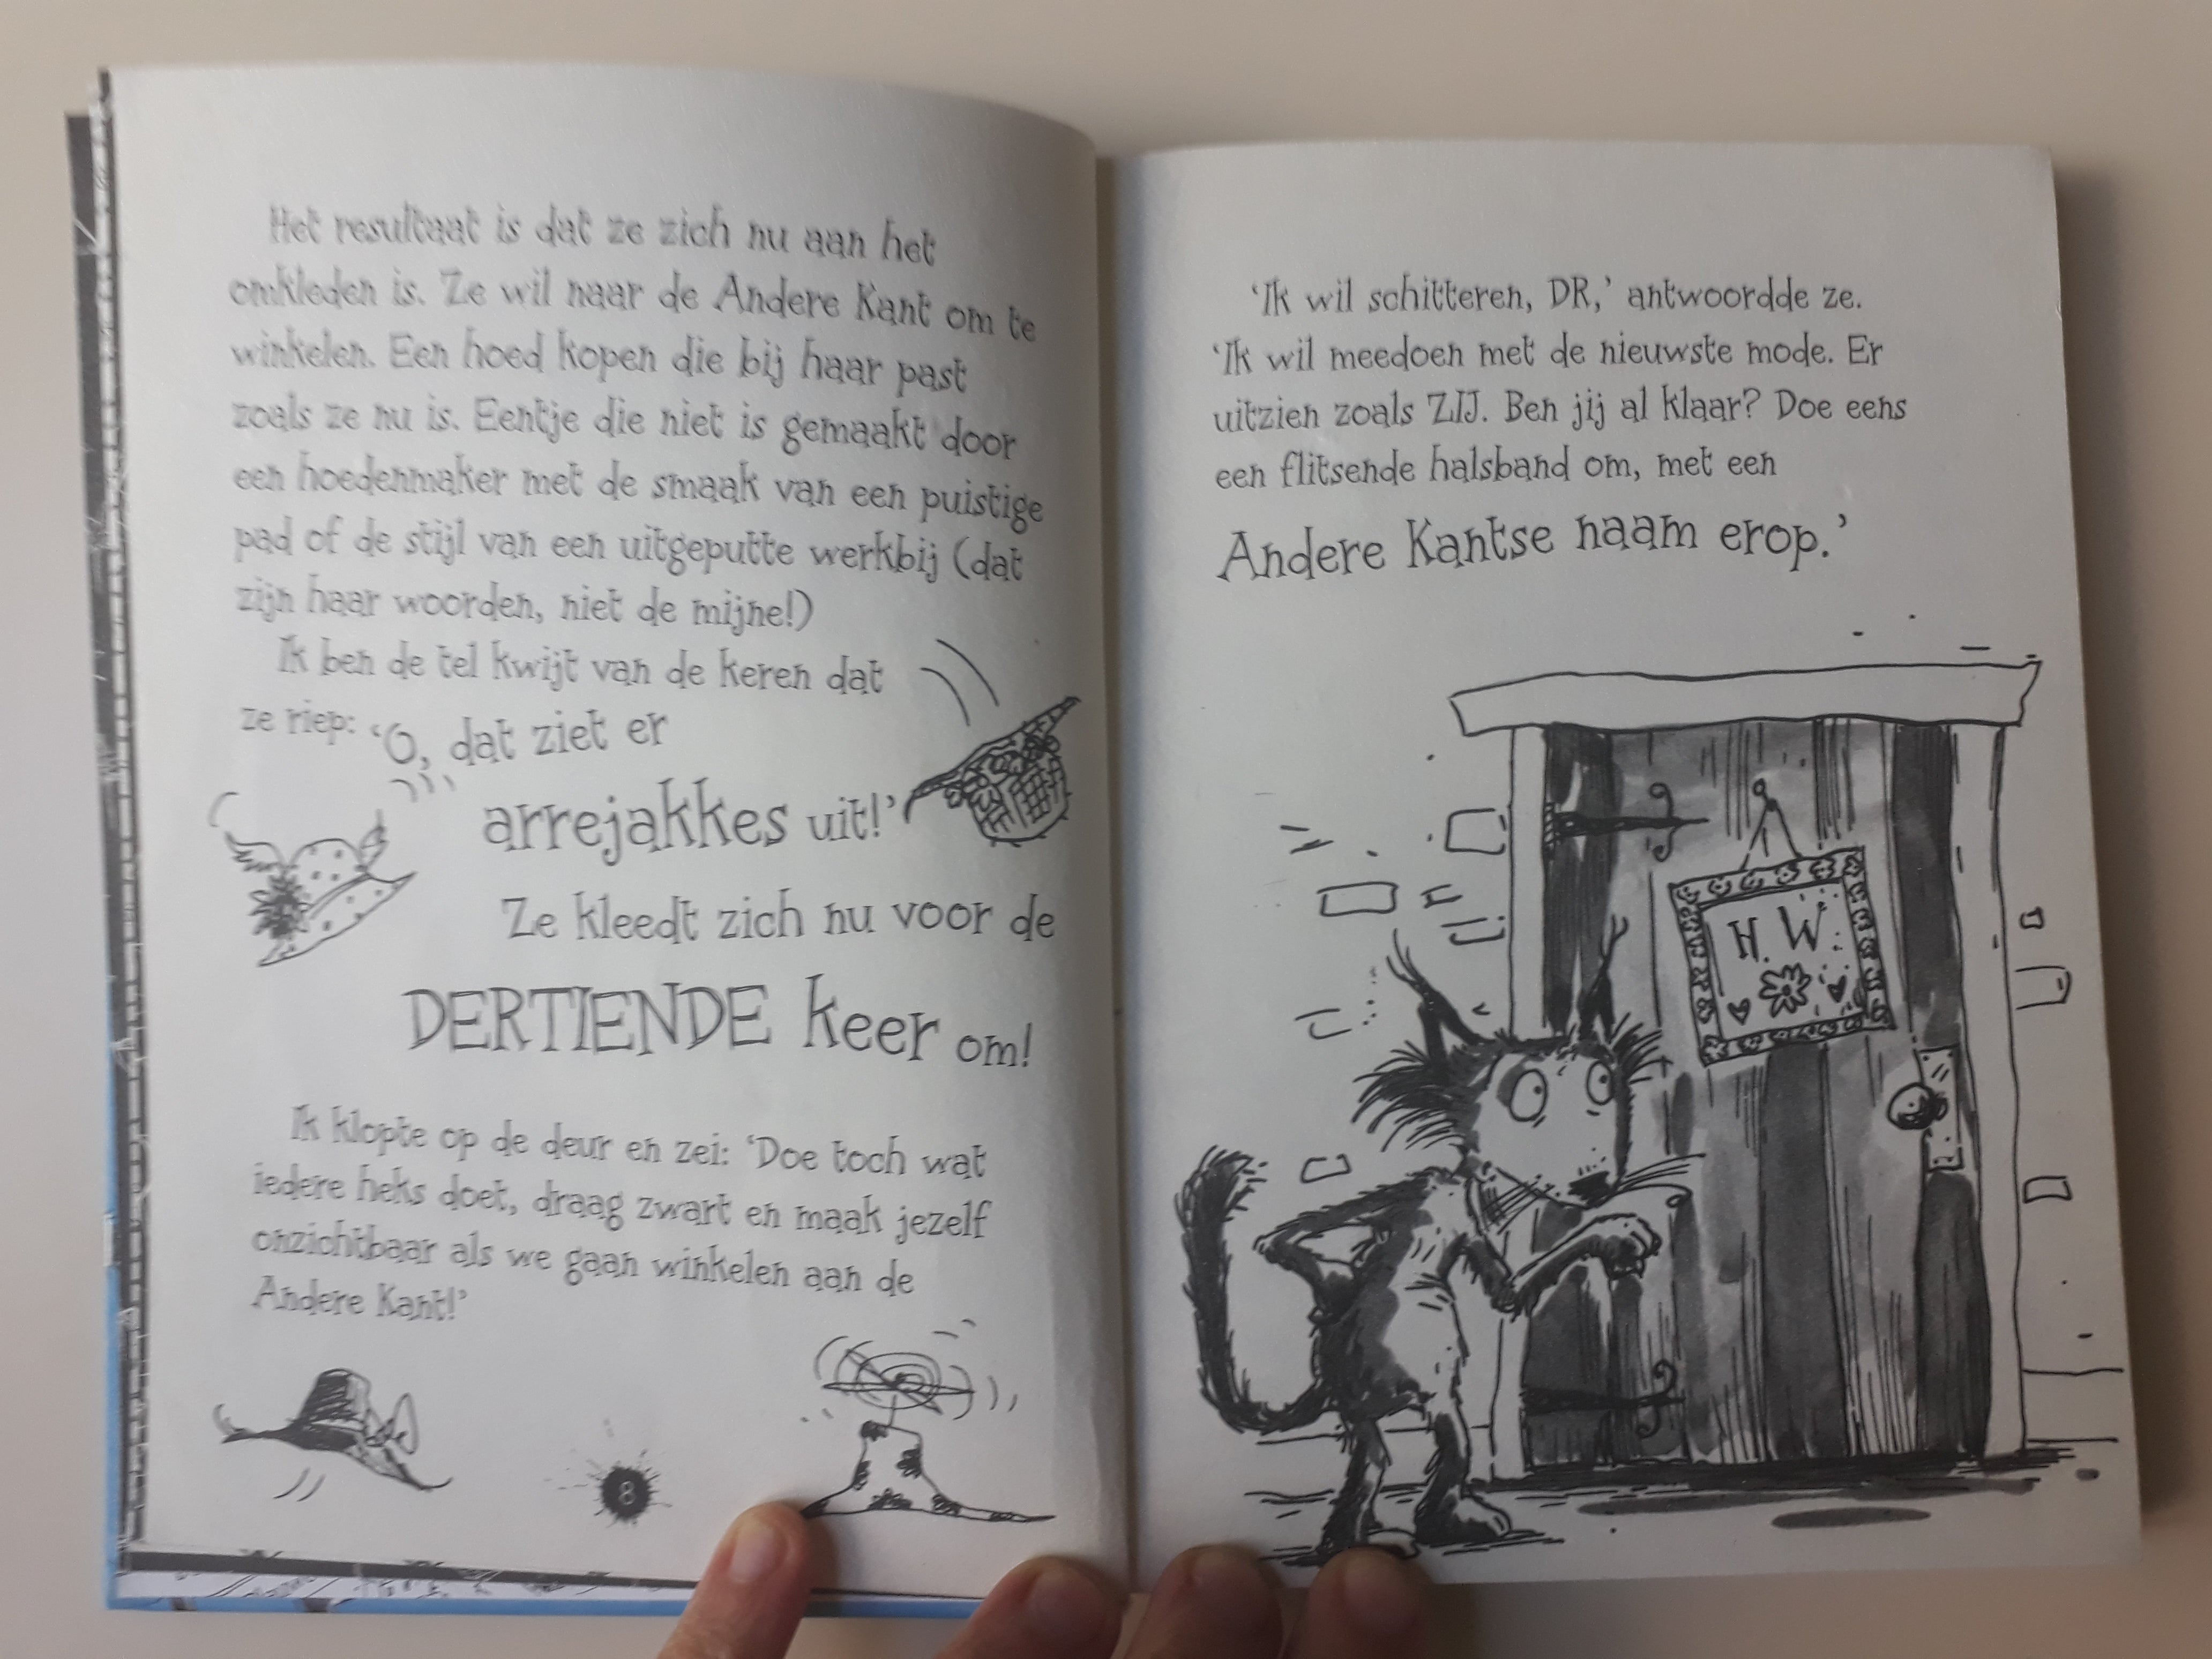 Het resultaat is dat ze zich nu aan het
omkleden is. Ze wil naar de Andere Kant om te
winkelen. Een hoed kopen die bij haar past
zoals ze nu is. Eentje die niet is gemaakt door
een hoedenmaker met de smaak van een puistige
pad of de stijl van een uitgeputte werkbij (dat
zijn haar woorden, niet de mijne!)
Ik ben de tel kwijt van de keren dat
ze riep: ‘O, dat ziet er
arrejakkes uit!’
Ze kleedt zich nu voor de
DERTIENDE keer om!
Ik klopte op de deur en zei: ‘Doe toch wat
iedere heks doet, draag zwart en maak jezelf
onzichtbaar als we gaan winkelen aan de
Andere Kant!’
8
‘Ik wil schitteren, DR,’ antwoordde ze.
‘Ik wil meedoen met de nieuwste mode. Er
uitzien zoals ZIJ. Ben jij al klaar? Doe eens
een flitsende halsband om, met een
Andere Kantse naam erop.’
H.W.